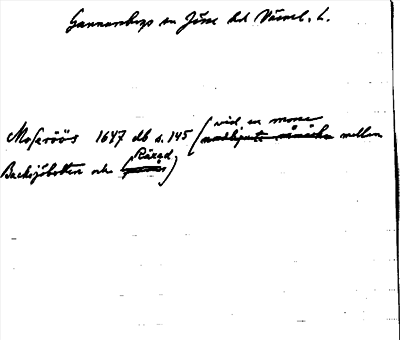 Gunnarsbergs sn Jösse hd Värml. L.
Moseröös 1647 db s. 145 (vid en mosse mellan
Backsjöbotten och Rärud)